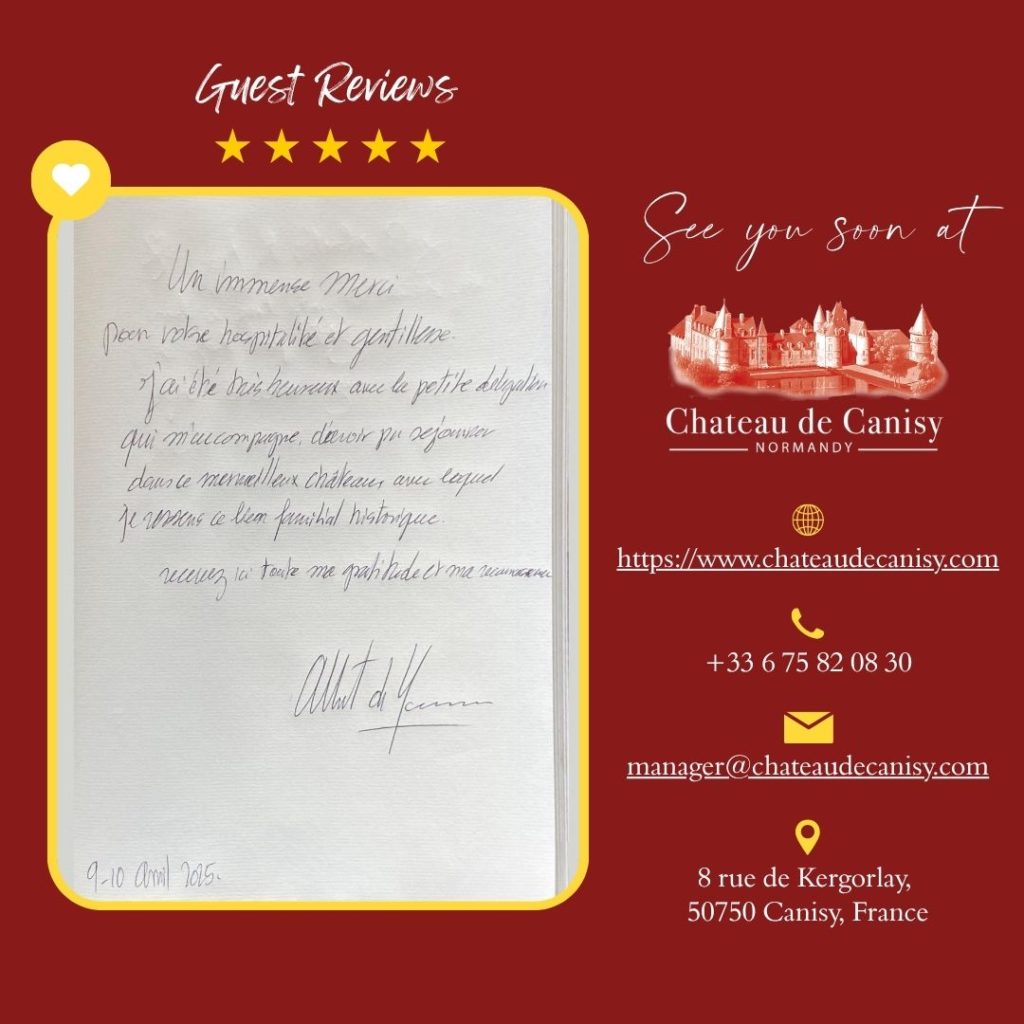 Guest Reviews
Un immense merci
pour votre hospitalité et gentillesse.
j'ai été très heureux avec la petite délégation
qui m'accompagne, d'avoir pu séjourner
dans ce merveilleux château avec lequel
je ressens ce lien familial historique.
recevez ici toute ma gratitude et ma reconnaissance
Albert de
9-10 Avril 2025.
See you soon at
Chateau de Canisy
NORMANDY
https://www.chateaudecanisy.com
+33 6 75 82 08 30
manager@chateaudecanisy.com
8 rue de Kergorlay,
50750 Canisy, France